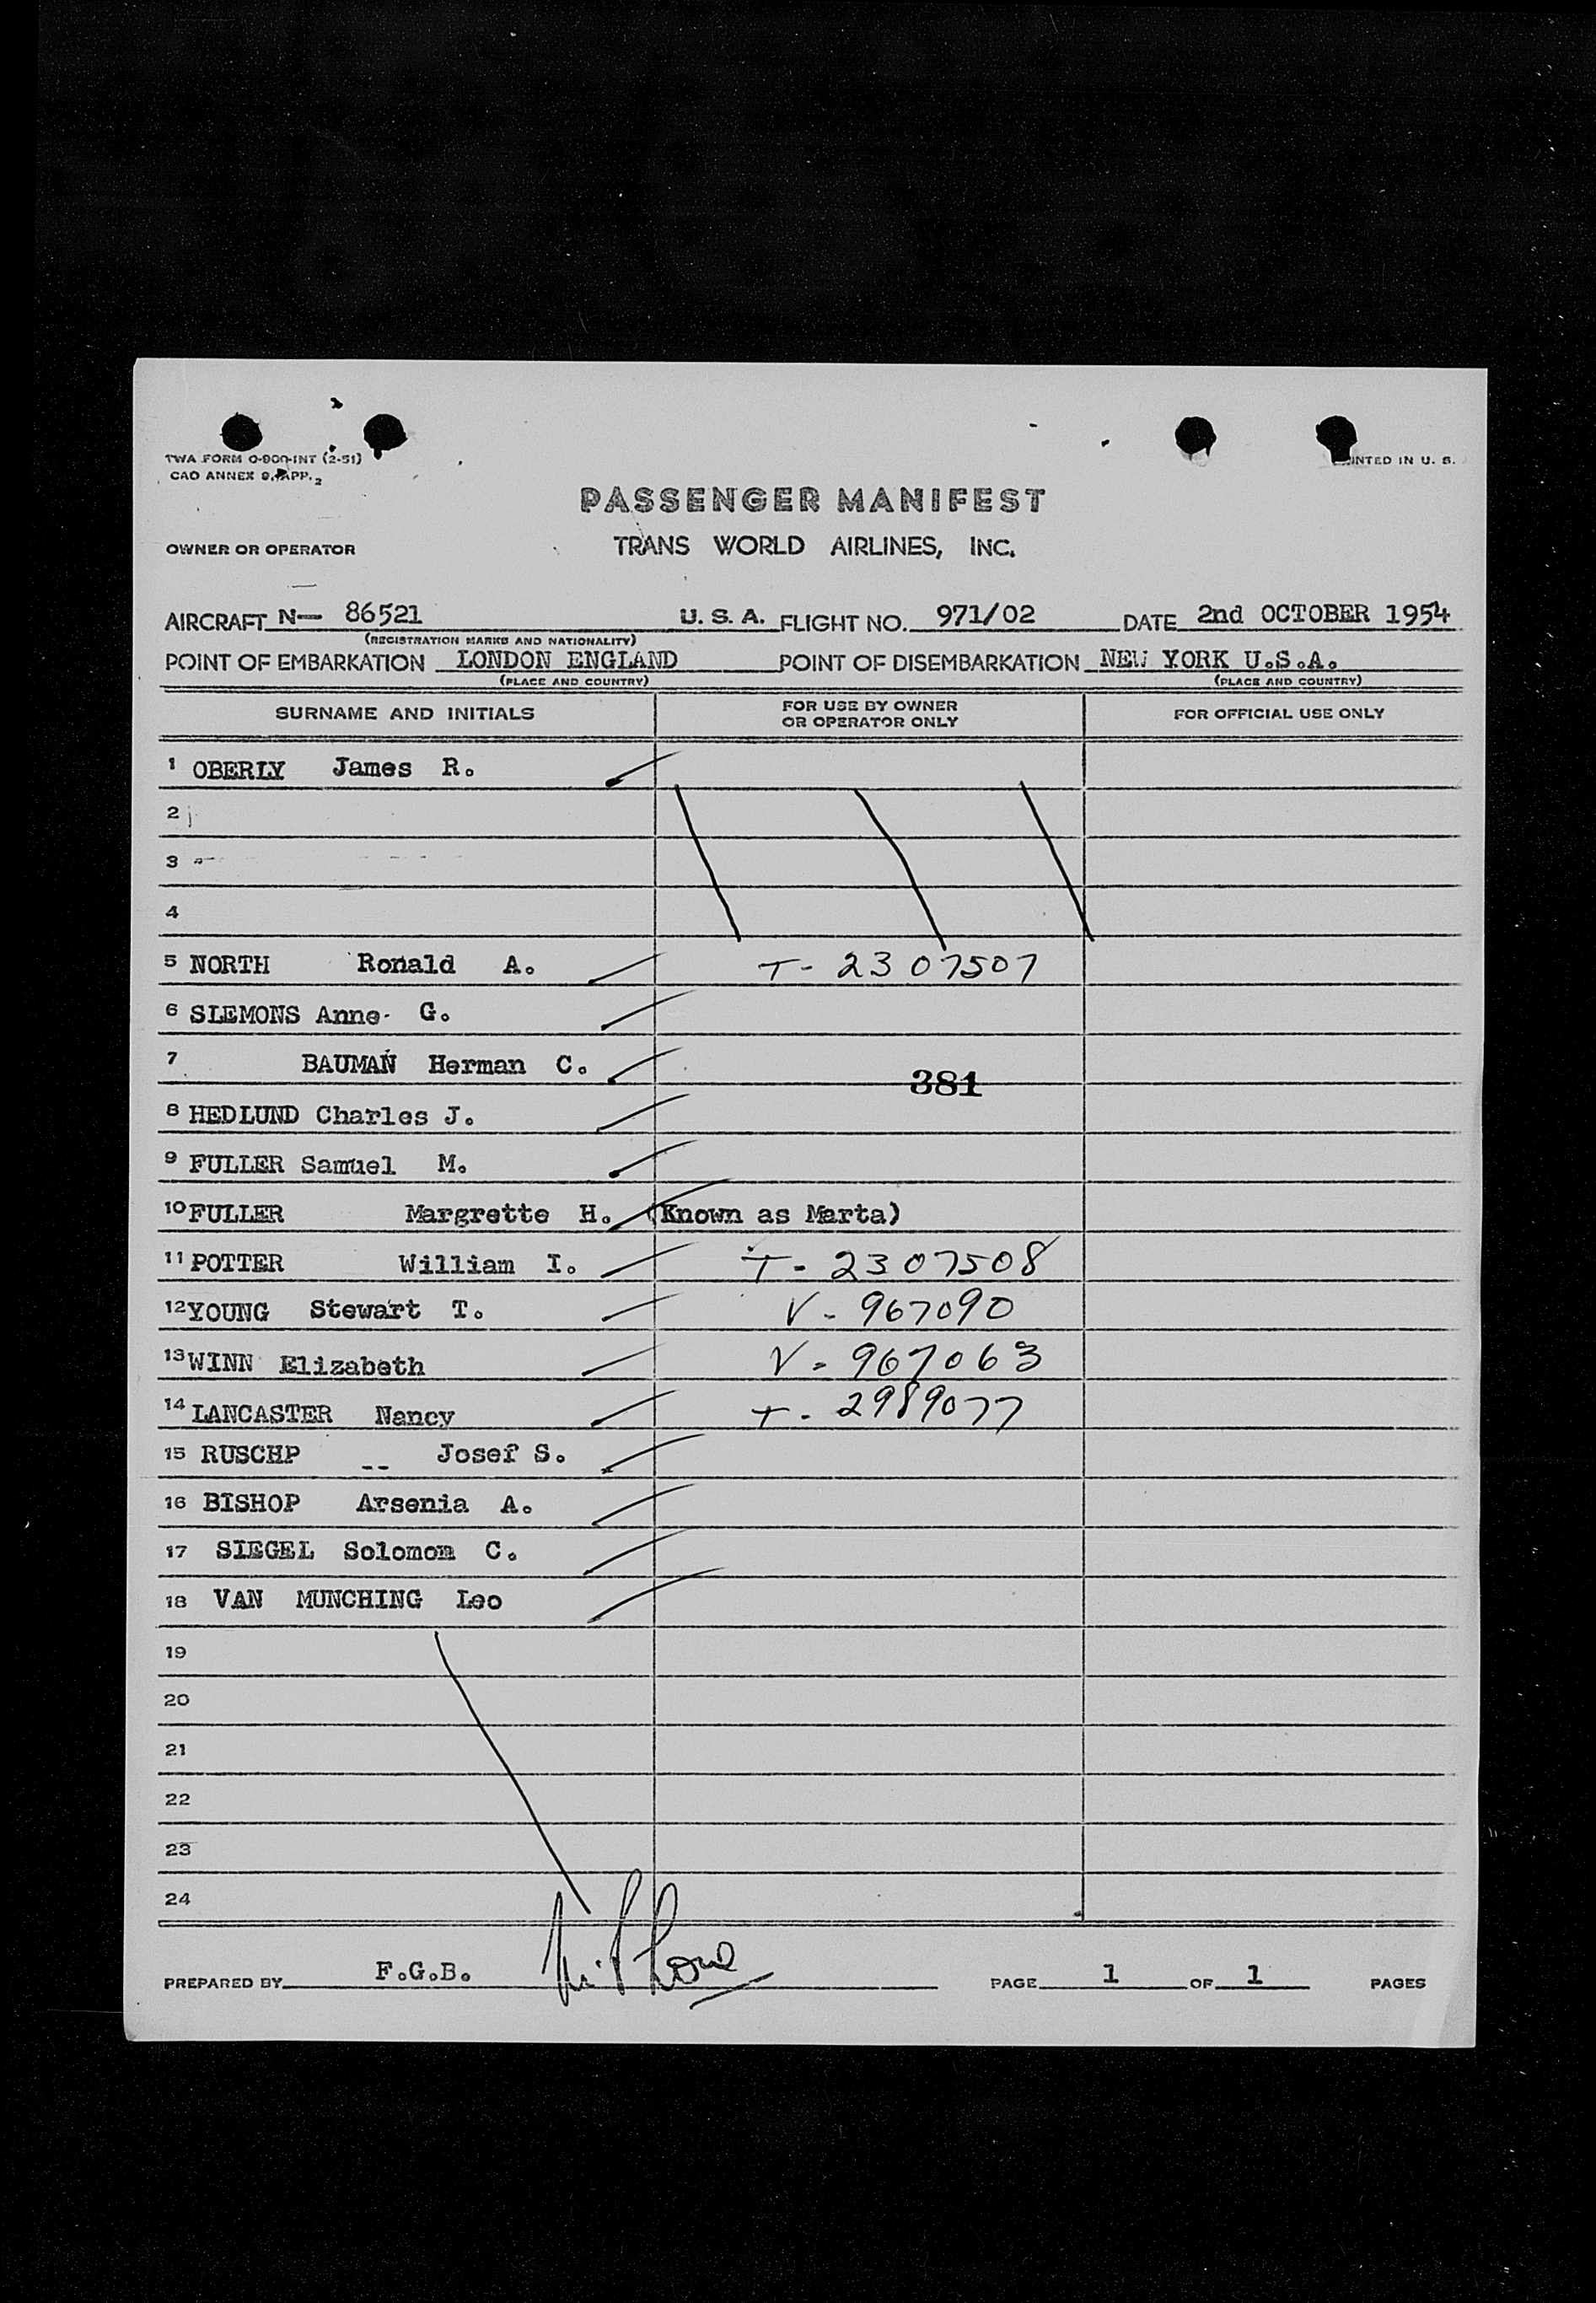 TWA FORM O-900-INT (2-51)
CAO ANNEX 9, APP. 2
PRINTED IN U. S.
PASSENGER MANIFEST
OWNER OR OPERATOR TRANS WORLD AIRLINES, INC.
AIRCRAFT N— 86521 U. S. A. FLIGHT NO. 971/02 DATE 2nd OCTOBER 1954
(REGISTRATION MARKS AND NATIONALITY)
POINT OF EMBARKATION LONDON ENGLAND POINT OF DISEMBARKATION NEW YORK U.S.A.
(PLACE AND COUNTRY) (PLACE AND COUNTRY)
SURNAME AND INITIALS FOR USE BY OWNER OR OPERATOR ONLY FOR OFFICIAL USE ONLY
1 OBERLY James R.
2
3
4
5 NORTH Ronald A. T- 2307507
6 SLEMONS Anne G.
7 BAUMAN Herman C.
381
8 HEDLUND Charles J.
9 FULLER Samuel M.
10 FULLER Margrette H. (Known as Marta)
11 POTTER William I. T- 2307508
12 YOUNG Stewart T. V- 967090
13 WINN Elizabeth V- 967063
14 LANCASTER Nancy T- 2989077
15 RUSCHP -- Josef S.
16 BISHOP Arsenia A.
17 SIEGEL Solomon C.
18 VAN MUNCHING Leo
19
20
21
22
23
24
PREPARED BY F.G.B. PAGE 1 OF 1 PAGES